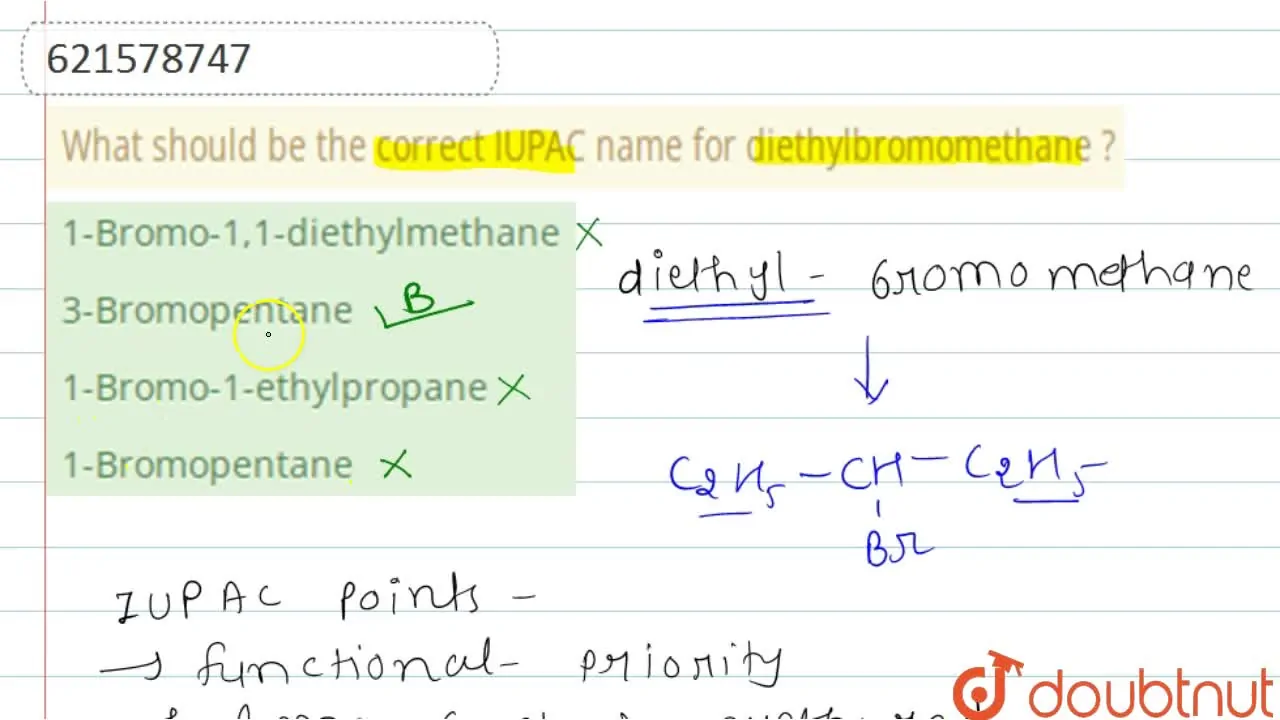 621578747
What should be the correct IUPAC name for diethylbromomethane ?
1-Bromo-1,1-diethylmethane ×
3-Bromopentane B
1-Bromo-1-ethylpropane ×
1-Bromopentane ×
diethyl - bromo methane
↓
C2H5 - CH - C2H5
Br
IUPAC points -
→ functional - priority
doubtnut